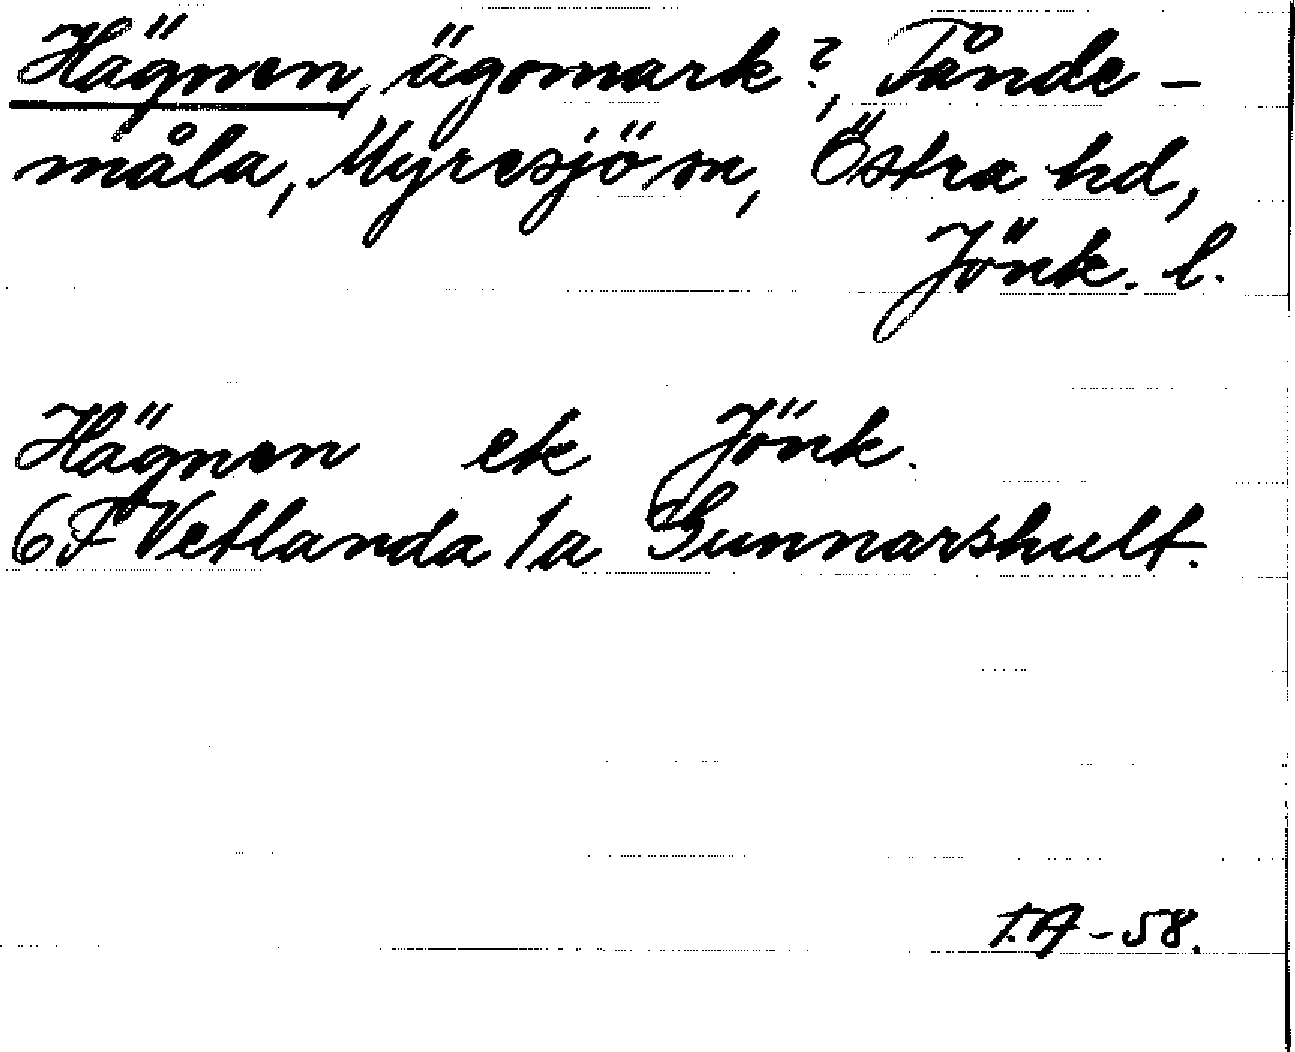 Hägnen, ägomark?, Tånde-
måla, Myresjö sn, Östra hd,
Jönk. l.
Hägnen ek Jönk.
6F Vetlanda 1a Gunnarshult.
T.A -58.